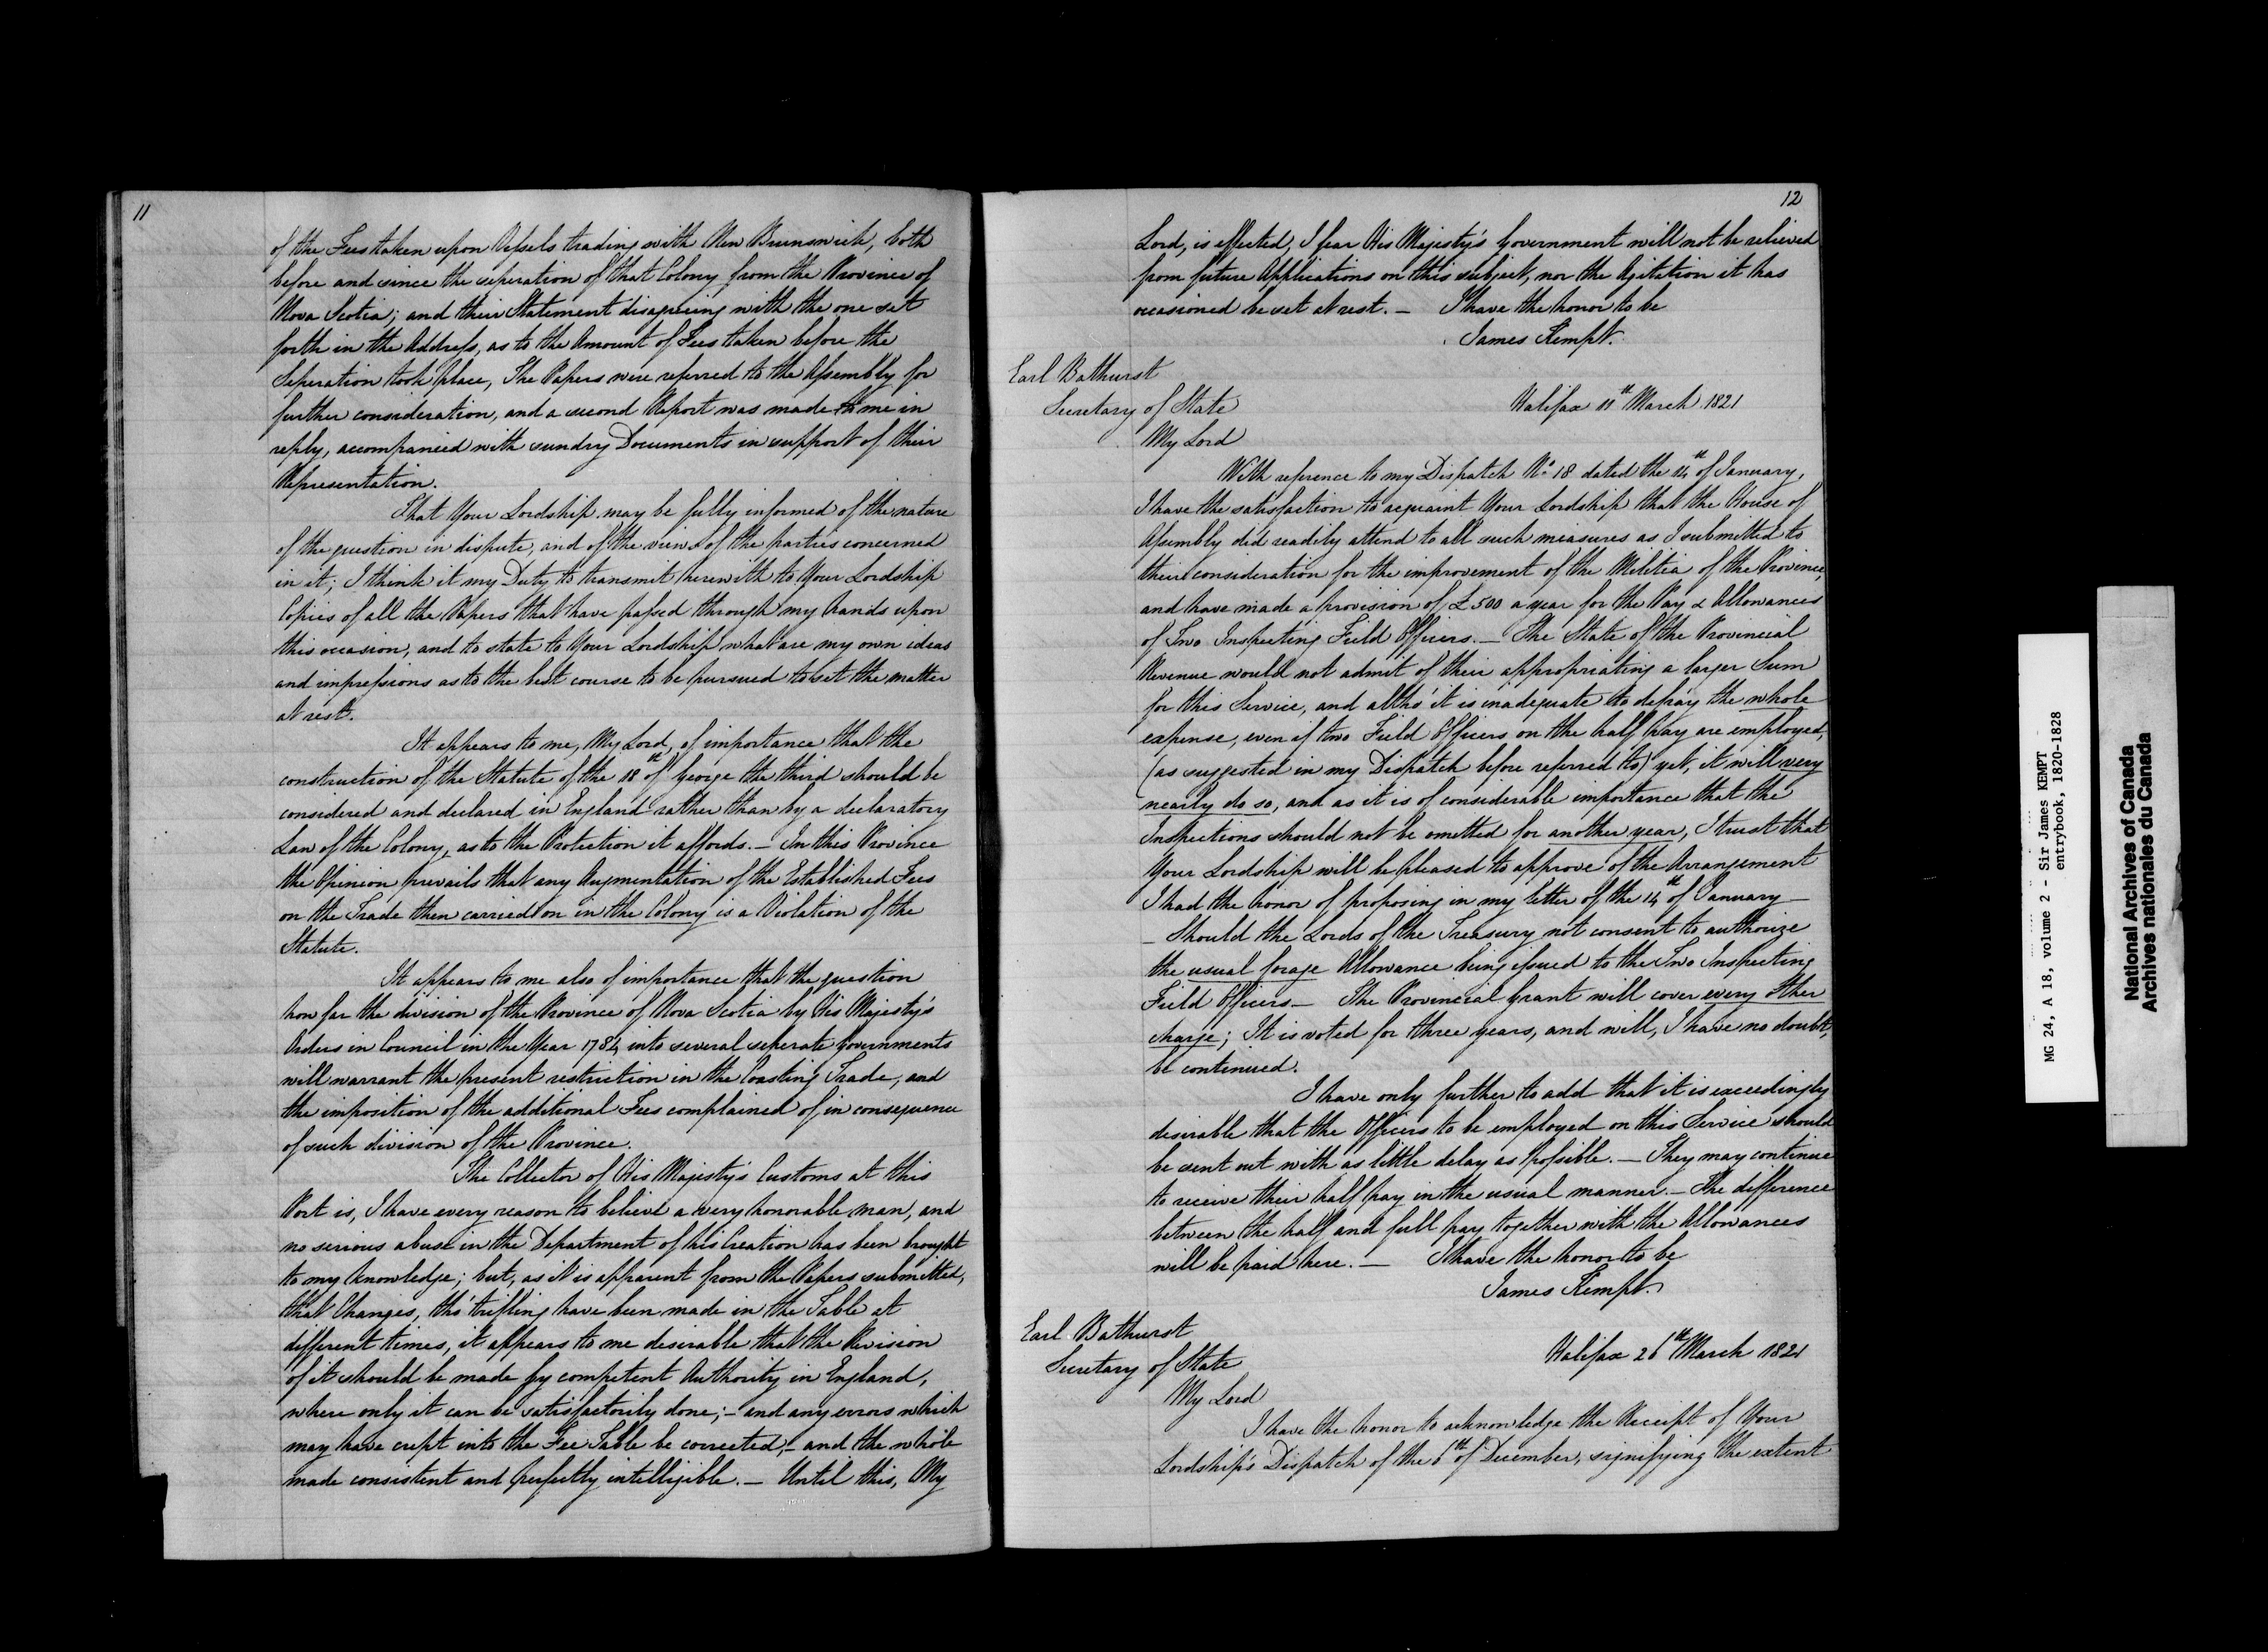 11
of the Fees taken upon Vessels trading with New Brunswick, both
before and since the seperation of that Colony from the Province of
Nova Scotia; and their Statement disagreeing with the one set
forth in the Address, as to the Amount of Fees taken before the
Seperation took place, The Papers were referred to the Assembly for
further consideration, and a second Report was made to me in
reply, accompanied with sundry Documents in support of their
Representation.
That Your Lordship may be fully informed of the nature
of the question in dispute, and of the views of the parties concerned
in it; I think it my Duty to transmit herewith to Your Lordship
Copies of all the Papers that have passed through my hands upon
this occasion, and to state to Your Lordship what are my own ideas
and impressions as to the best course to be pursued to set the matter
at rest.
It appears to me, My Lord, of importance that the
construction of the Statute of the 18th of George the third should be
considered and declared in England rather than by a declaratory
Law of the Colony, as to the Protection it affords. — In this Province
the Opinion prevails that any Augmentation of the Established Fees
on the Trade then carried on in the Colony is a Violation of the
Statute.
It appears to me also of importance that the question
how far the division of the Province of Nova Scotia by His Majesty's
Orders in Council in the Year 1784 into several seperate Governments
will warrant the present restriction in the Coasting Trade, and
the imposition of the additional Fees complained of in consequence
of such division of the Province.
The Collector of His Majesty's Customs at this
Port is, I have every reason to believe a very honorable man, and
no serious abuse in the Department of his Creation has been brought
to my knowledge; but, as it is apparent from the Papers submitted,
that Changes, tho' trifling have been made in the Table at
different times, it appears to me desirable that the Revision
of it should be made by competent Authority in England,
where only it can be satisfactorily done; — and any errors which
may have crept into the Fee Table be corrected, — and the whole
made consistent and perfectly intelligible. — Until this, My
12
Lord, is effected, I fear His Majesty's Government will not be relieved
from future Applications on this subject, nor the Agitation it has
occasioned be set at rest. — I have the honor to be
James Kempt.
Earl Bathurst
Secretary of State
Halifax 11th March 1821
My Lord
With reference to my Dispatch No. 18 dated the 14th of January,
I have the satisfaction to acquaint Your Lordship that the House of
Assembly did readily attend to all such measures as I submitted to
their consideration for the improvement of the Militia of the Province,
and have made a provision of £500 a year for the Pay & Allowances
of Two Inspecting Field Officers. — The State of the Provincial
Revenue would not admit of their appropriating a larger Sum
for this Service, and altho' it is inadequate to defray the whole
expense, even if two Field Officers on the half Pay are employed,
(as suggested in my Dispatch before referred to) yet, it will very
nearly do so, and as it is of considerable importance that the
Inspections should not be omitted for another year, I trust that
Your Lordship will be pleased to approve of the Arrangement
I had the honor of proposing in my letter of the 14th of January —
— Should the Lords of the Treasury not consent to authorize
the usual forage Allowance being issued to the Two Inspecting
Field Officers — The Provincial Grant will cover every other
charge; It is voted for three years, and will, I have no doubt,
be continued.
I have only further to add that it is exceedingly
desirable that the Officers to be employed on this Service should
be sent out with as little delay as possible. — They may continue
to receive their half pay in the usual manner. — The difference
between the half and full pay together with the Allowances
will be paid here. — I have the honor to be
James Kempt.
Earl Bathurst
Secretary of State
Halifax 26th March 1821
My Lord
I have the honor to acknowledge the Receipt of Your
Lordship's Dispatch of the 6th of December, signifying the extent
MG 24, A 18, volume 2 - Sir James KEMPT
entrybook, 1820-1828
National Archives of Canada
Archives nationales du Canada